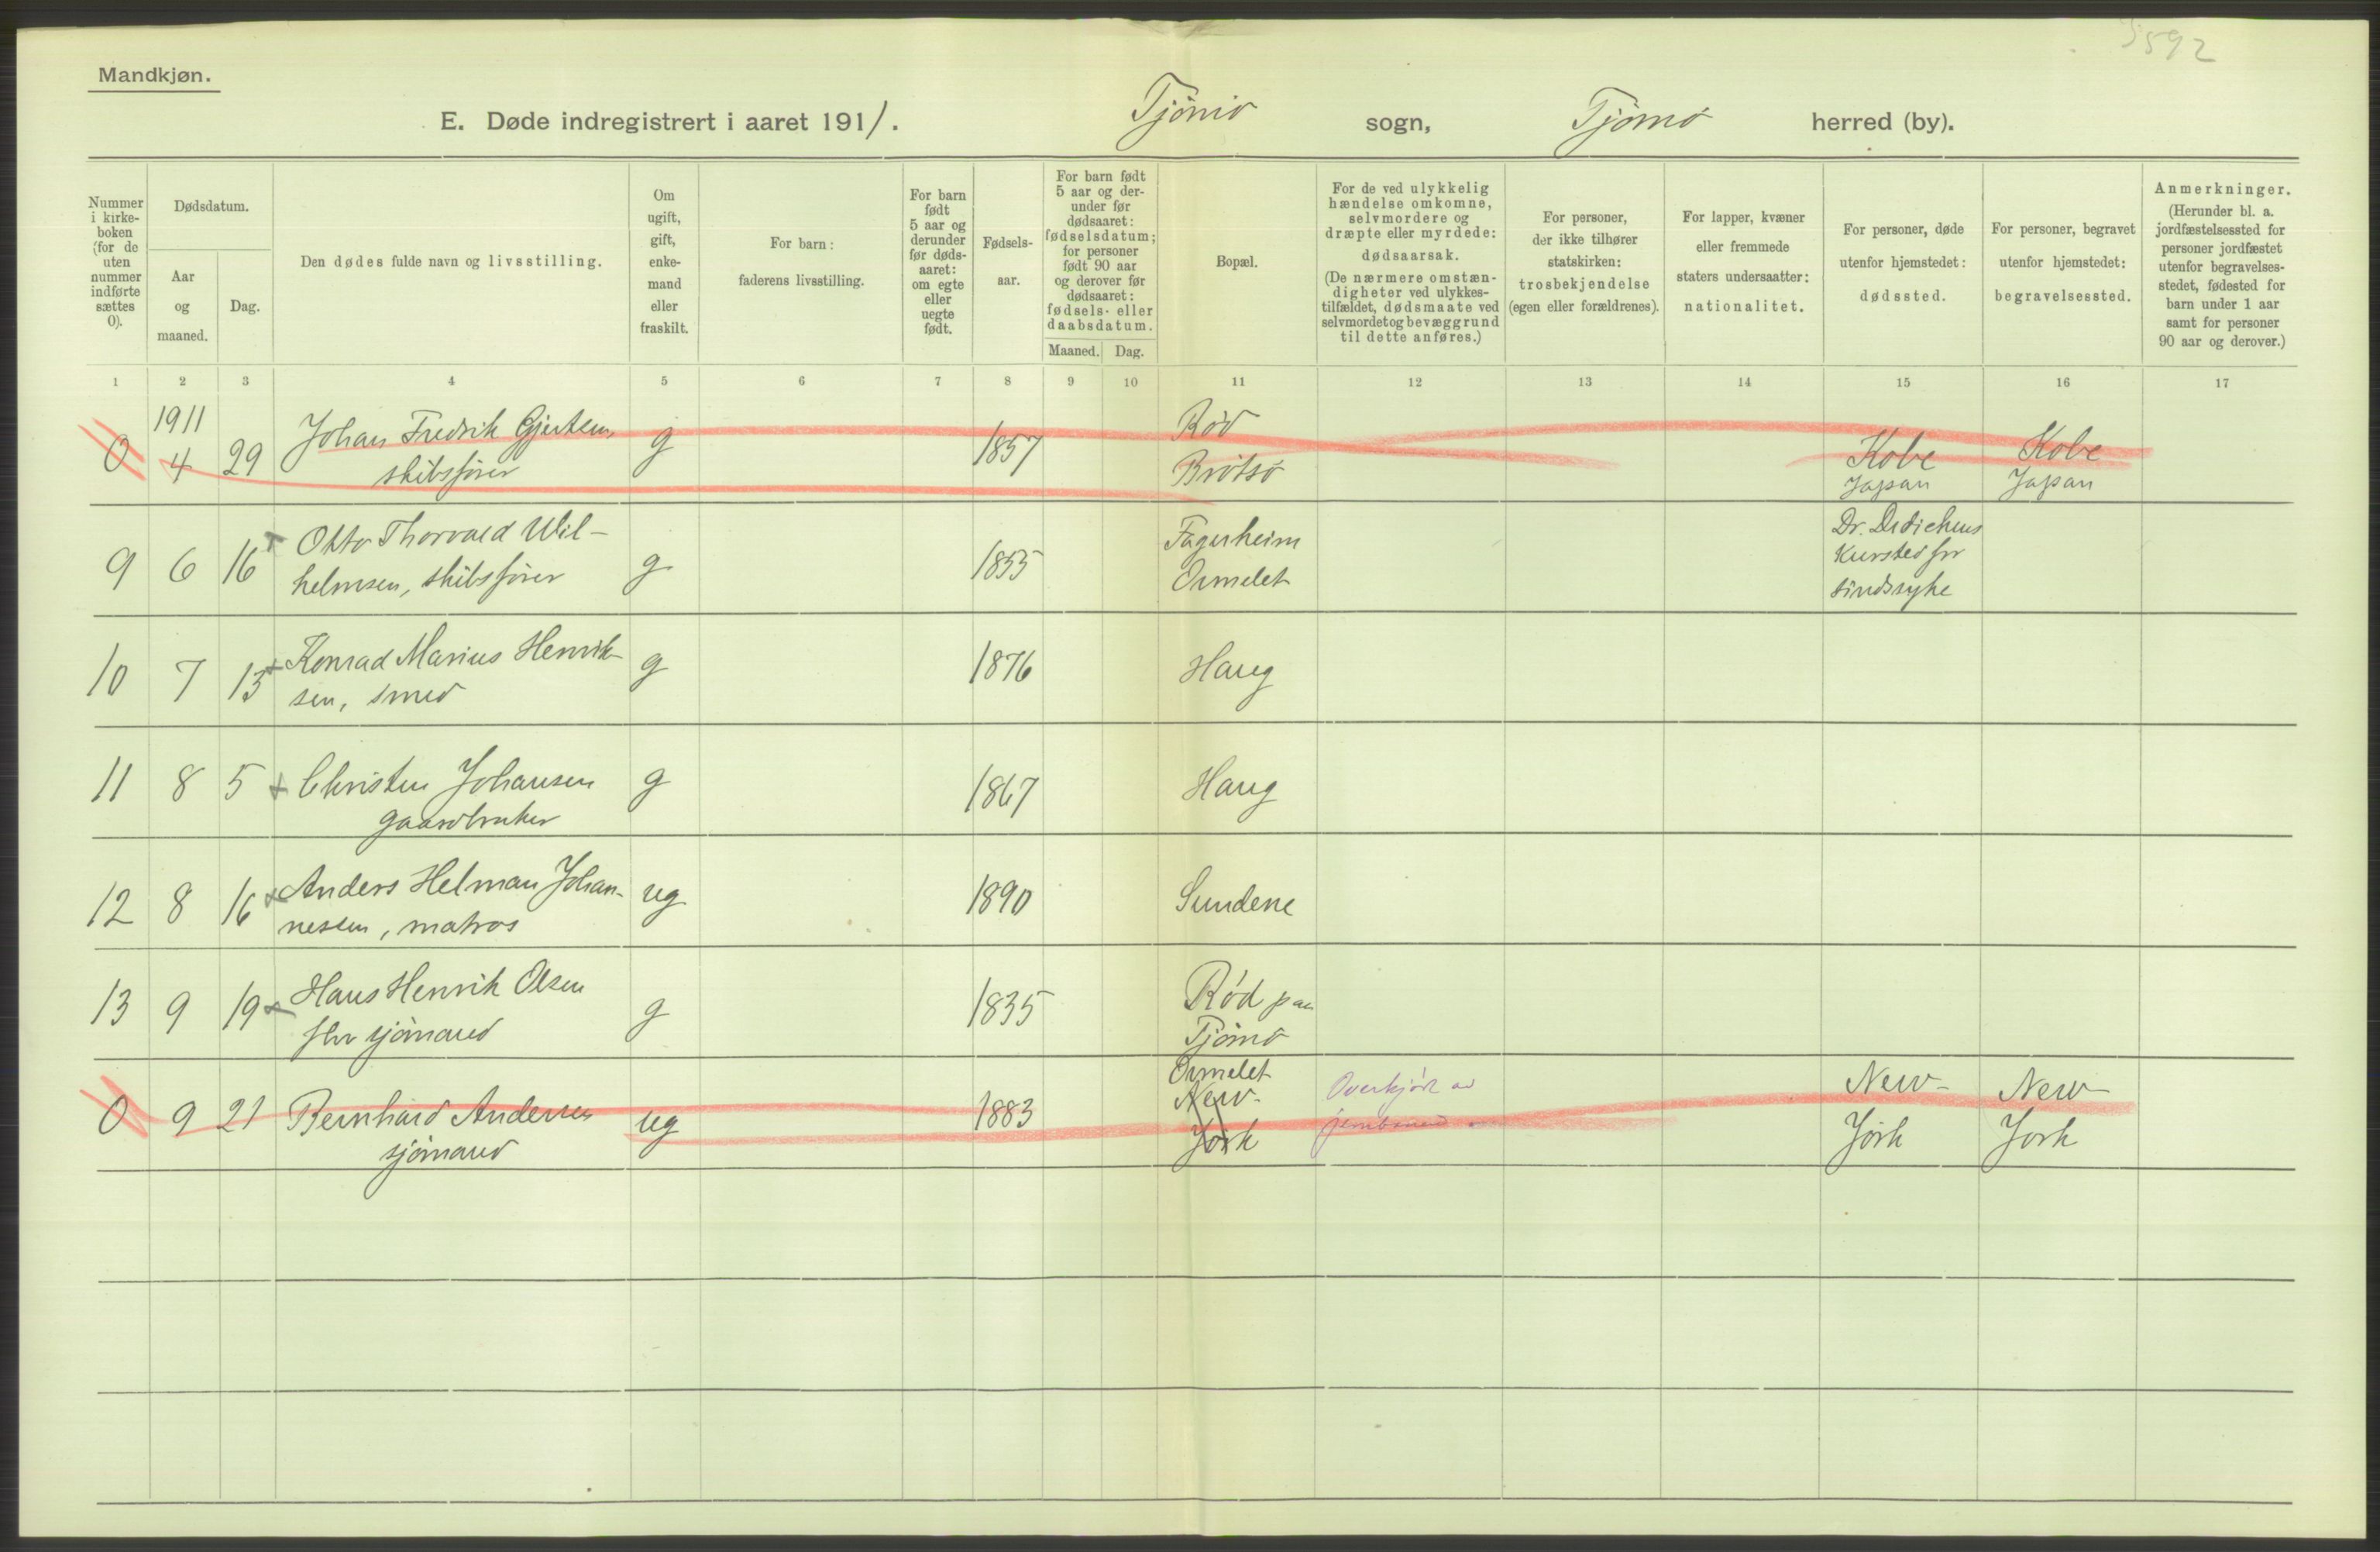 5592
Mandkjøn.
E. Døde indregistrert i aaret 1911. Tjømø sogn, Tjømø herred (by).
Nummer i kirke-boken (for de uten nummer indførte sættes 0).
Dødsdatum.
Aar og maaned.
Dag.
Den dødes fulde navn og livsstilling.
Om ugift, gift, enke-mand eller fraskilt.
For barn: faderens livsstilling.
For barn født 5 aar og derunder før døds-aaret: om egte eller uegte født.
Fødsels-aar.
For barn født 5 aar og der-under før dødsaaret: fødselsdatum; for personer født 90 aar og derover før dødsaaret: fødsels- eller daabsdatum.
Maaned. Dag.
Bopæl.
For de ved ulykkelig hændelse omkomne, selvmordere og dræpte eller myrdede: dødsaarsak.
(De nærmere omstæn-digheter ved ulykkes-tilfældet, dødsmaate ved selvmordet og bevæggrund til dette anføres.)
For personer, der ikke tilhører statskirken: trosbekjendelse (egen eller forældrenes).
For lapper, kvæner eller fremmede staters undersaatter: nationalitet.
For personer, døde utenfor hjemstedet: dødssted.
For personer, begravet utenfor hjemstedet: begravelsessted.
Anmerkninger.
(Herunder bl. a. jordfæstelsessted for personer jordfæstet utenfor begravelses-stedet, fødested for barn under 1 aar samt for personer 90 aar og derover.)
1 2 3 4 5 6 7 8 9 10 11 12 13 14 15 16 17
1911
0 4 29 Johan Fredrik Gjertsen, g 1857 Rød Kobe Kobe
skibsfører Brøtsø Japan Japan
9 6 16 Otto Thorvald Wil- g 1855 Fagerheim Dr. Dedichens
helmsen, skibsfører Ormelet Kursted for
sindssyke
10 7 15 Konrad Marius Henrik- g 1876 Haug
sen, smed
11 8 5 Christen Johansen g 1867 Haug
gaardbruker
12 8 16 Anders Helman Johan- ug 1890 Sundene
nessen, matros
13 9 19 Hans Henrik Olsen g 1835 Rød paa
fhv sjømand Tjømø
Ormelet
0 9 21 Bernhard Andersen ug 1883 New- Overkjørt av New- New
sjømand York York York